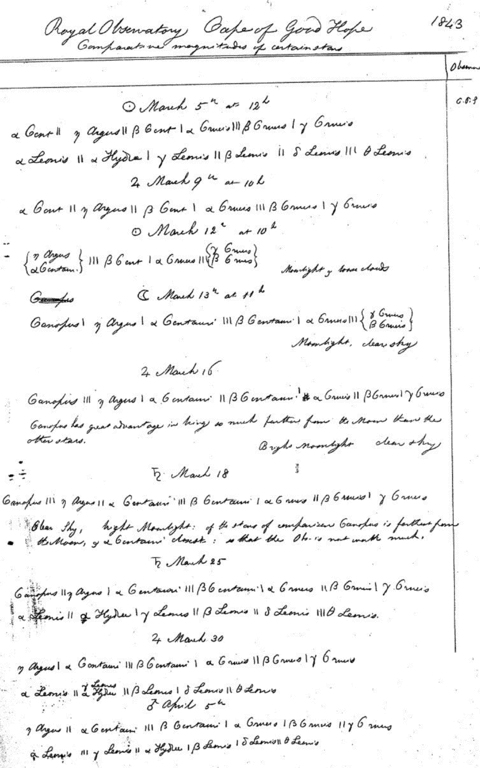 Royal Observatory Cape of Good Hope 1843
Comparative magnitudes of certain stars
Observer
☉ March 5th at 12h
α Cent || η Argus || β Cent | α Crucis ||| β Crucis | γ Crucis
α Leonis || α Hydræ | γ Leonis || β Leonis || δ Leonis ||| θ Leonis
♃ March 9th at 10h
α Cent || η Argus || β Cent | α Crucis ||| β Crucis | γ Crucis
☉ March 12th at 10h
{η Argus
α Centauri} ||| β Cent | α Crucis ||| {γ Crucis
β Crucis}
Moonlight & loose clouds
☾ March 13th at 11h
Canopus | η Argus | α Centauri ||| β Centauri | α Crucis ||| {γ Crucis
β Crucis}
Moonlight, clear sky
♃ March 16
Canopus ||| η Argus | α Centauri || β Centauri | α Crucis || β Crucis | γ Crucis
Canopus has great advantage in being so much farther from the Moon than the
other stars.
Bright Moonlight clear sky
♄ March 18
Canopus ||| η Argus || α Centauri ||| β Centauri | α Crucis || β Crucis | γ Crucis
Clear Sky, bright Moonlight: of the stars of comparison Canopus is farthest from
the Moon, & α Centauri closest: so that the Obs. is not worth much.
♄ March 25
Canopus || η Argus | α Centauri ||| β Centauri | α Crucis || β Crucis | γ Crucis
α Leonis || α Hydræ | γ Leonis || β Leonis || δ Leonis ||| θ Leonis.
♃ March 30
η Argus | α Centauri ||| β Centauri | α Crucis || β Crucis | γ Crucis
α Leonis || γ Leonis
α Hydræ || β Leonis | δ Leonis || θ Leonis
♂ April 5th
η Argus || α Centauri ||| β Centauri | α Crucis | β Crucis || γ Crucis
α Leonis ||| γ Leonis || α Hydræ | β Leonis | δ Leonis || θ Leonis